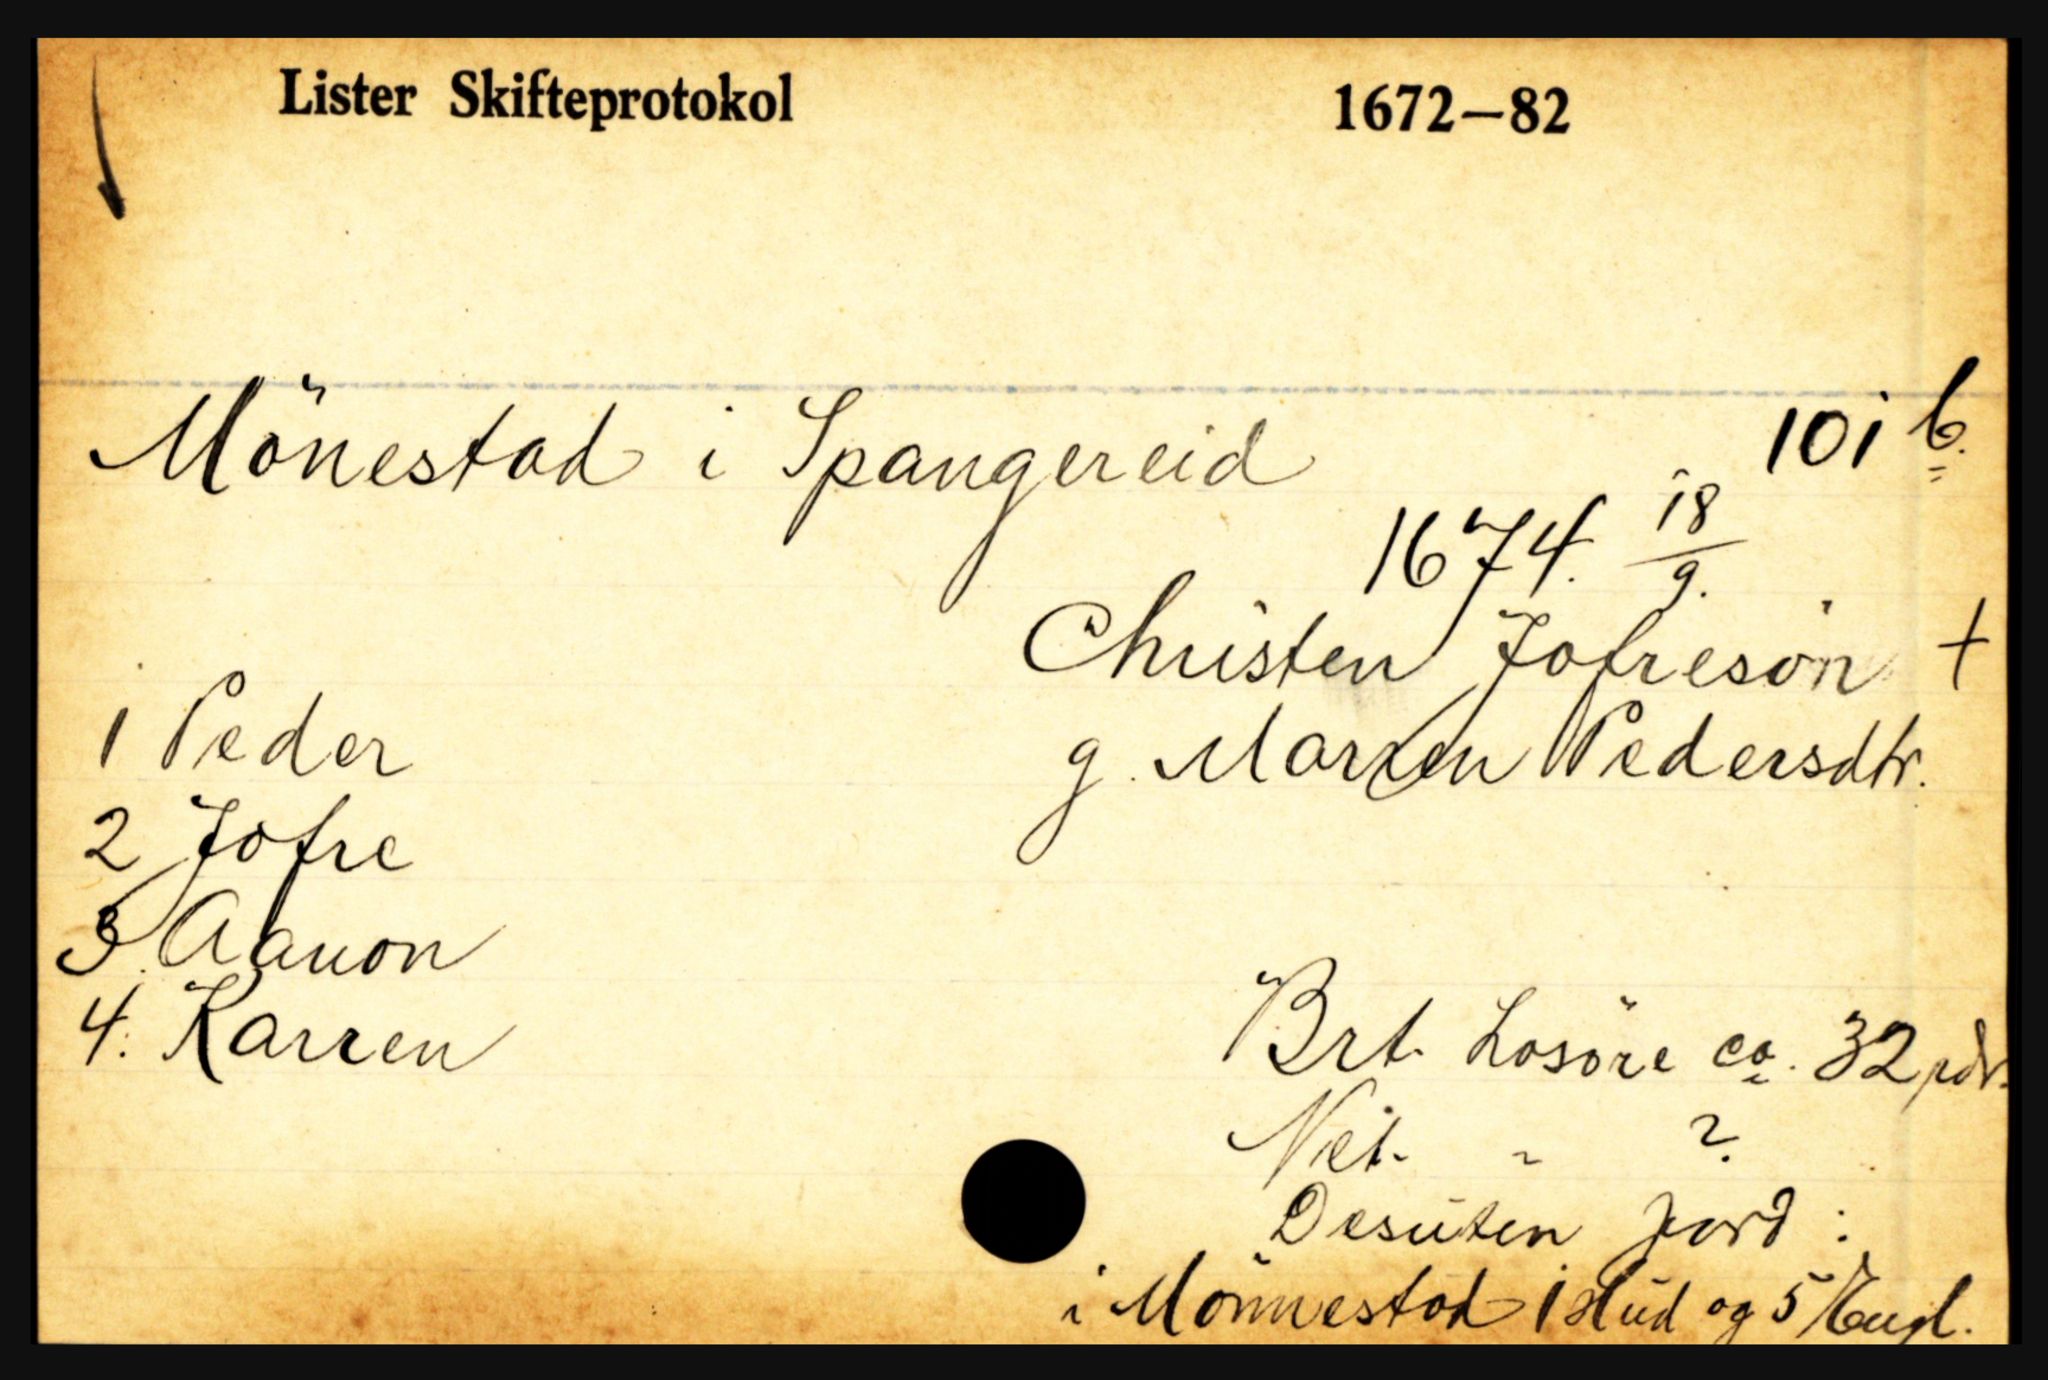 Lister Skifteprotokol 1672-82
Mönestad i Spangereid 101 b.
1674. 18/9.
Christen Jofresön +
g. Marren Pedersdtr.
1 Peder
2 Jofre
3. Aanon
4. Karren
Brt. Losöre ca. 32 pdr.
Net. - ?
Desuten jord :
i Mönnestad 1 Hud og 5 Engl.